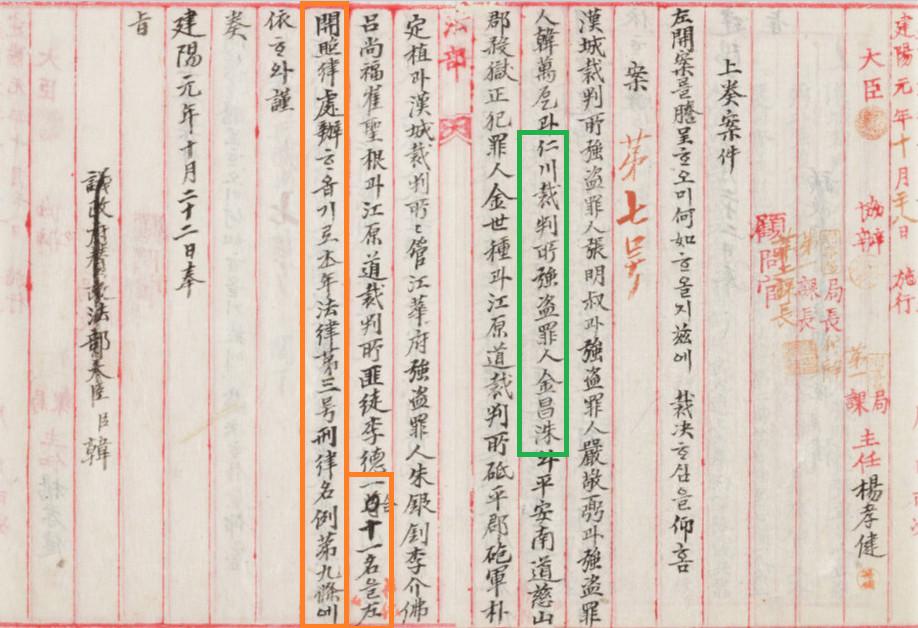 建陽元年十月廿八日 施行
大臣 協辦
局長
課長
顧問官
課 局 主任 楊孝健
左開案을謄呈ᄒᆞ오미何如ᄒᆞ올지玆에 裁決ᄒᆞ심을仰홈
上奏案件
案 第七号
漢城裁判所強盗罪人張明叔과強盗罪人嚴敬弼과強盗罪
人韓萬乭과仁川裁判所強盗罪人金昌洙와平安南道慈山
郡殺獄正犯罪人金世種과江原道裁判所砥平郡砲軍朴
法部
定植과漢城裁判所〻管江華府強盗罪人朱銀釗李介佛
呂尚福崔聖根과江原道裁判所匪徒李德一 合十一名을左
開照律處辦ᄒᆞ옵기로本年法律第三号刑律名例第九條에
依ᄒᆞ와謹
奏
建陽元年十月二十二日奉
旨
議政府贊政法部大臣 臣 韓